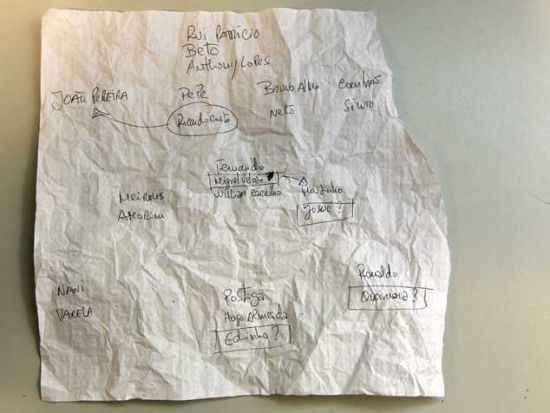 Rui Patrício
Beto
Anthony Lopes
João Pereira
Pepe
Bruno Alves
Coentrão
Ricardo Costa
Neto
Silvio
Fernando
Miguel Veloso
William Carvalho
Moutinho
Josué?
Meireles
Amorim
Ronaldo
Quaresma?
Nani
Varela
Postiga
Hugo Almeida
Edinho?